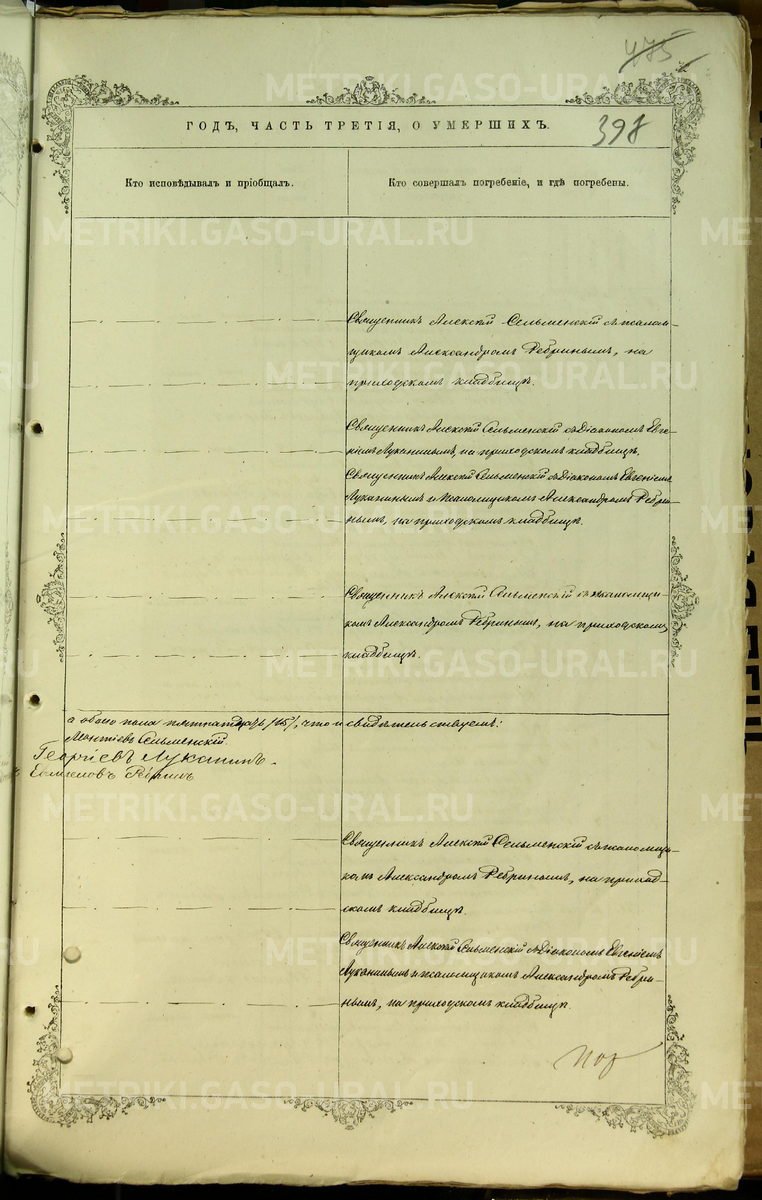 475
398
ГОДЪ, ЧАСТЬ ТРЕТІЯ, О УМЕРШИХЪ.
Кто исповѣдывалъ и пріобщалъ.
Кто совершалъ погребеніе, и гдѣ погребены.
Священникъ Алексій Сельменскій съ псалом-
щикомъ Александромъ Ребринымъ, на
приходскомъ кладбищѣ.
Священникъ Алексій Сельменскій съ Діакономъ Евге-
ніемъ Луканинымъ, на приходскомъ кладбищѣ.
Священникъ Алексій Сельменскій съ Діакономъ Евгеніемъ
Луканинымъ и псаломщикомъ Александромъ Ребри-
нымъ, на приходскомъ кладбищѣ.
Священникъ Алексій Сельменскій съ псаломщи-
комъ Александромъ Ребринымъ, на приходскомъ
кладбищѣ.
а обоего пола пятнатцать /15/, что и свидѣтельствуемъ:
Сельменскій.
Георгіевъ Луканинъ.
Ребринъ
Священникъ Алексій Сельменскій съ псаломщи-
комъ Александромъ Ребринымъ, на приход-
скомъ кладбищѣ.
Священникъ Алексій Сельменскій съ Діакономъ Евгеніемъ
Луканинымъ и псаломщикомъ Александромъ Ребри-
нымъ, на приходскомъ кладбищѣ.
METRIKI.GASO-URAL.RU